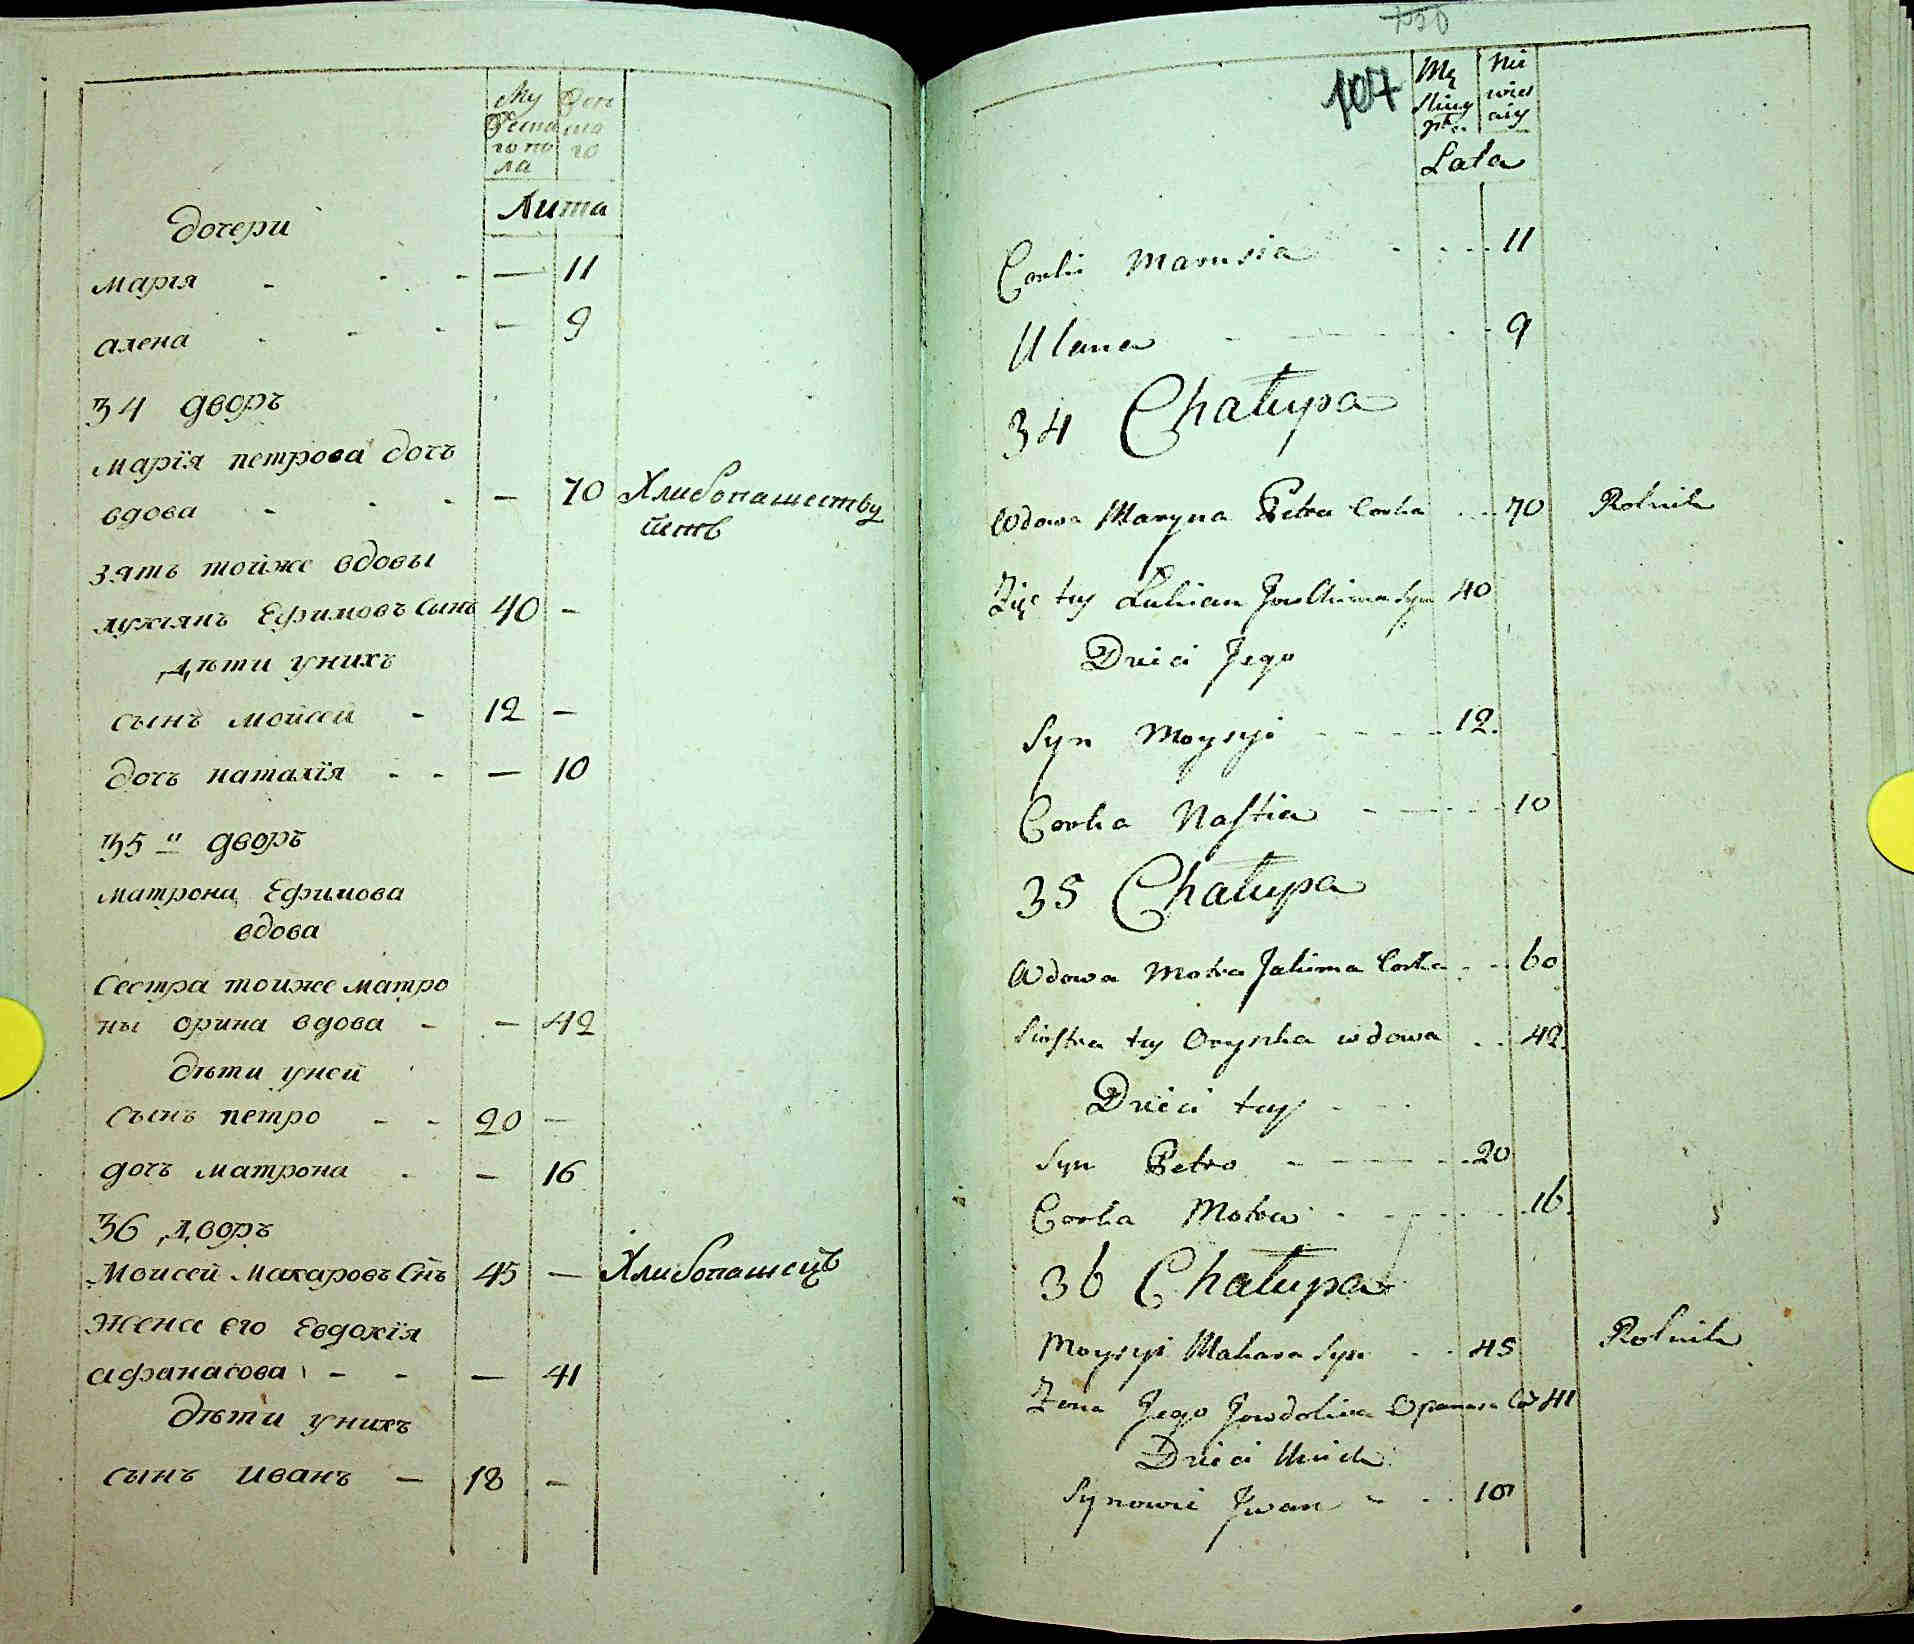 Му
жеска
го по
ла
Жен
ска
го
Лита
дочери
марія - - - — 11
алена - - - — 9
34 дворъ
марїя петрова дочъ
вдова - - - — 70 Хлибопашеству
зять тойже вдовы
лукіянъ Ефимовъ Сынъ 40 —
дѣти унихъ
сынъ мойсей - 12 —
дочъ наталїя - - — 10
35 й дворъ
матрона Ефимова
вдова
Сестра тойже матро
ны орина вдова - — 42
дѣти уней
сынъ петро - - 20 —
дочъ матрона - — 16
36 дворъ
Моисей Макаровъ Снъ 45 — Хлибопашецъ
жена его Евдокїя
афанасова - - — 41
дѣти унихъ
сынъ иванъ — 18 —
107
Mę
Nie
Lata
Corki Marusia - - - 11
Ulana - - - 9
34 Chałupa
Wdowa Maryna Petra Corka - - 70 Rolnik
Zięc tey Lukian Jowchima Syn 40
Dzieci Jego
Syn Moysyi - - - - 12.
Corka Nastia - - - - 10
35 Chałupa
Wdowa Motra Jakima Corka - - 60
Siostra tey Orynka wdowa - - 42.
Dzieci tey - -
Syn Petro - - - - 20
Corka Motra - - - - 16.
36 Chałupa
Moysyi Makara Syn - - 45 Rolnik
Zona Jego Jowdokia Opanasa Cor 41
Dzieci Unich
Synowie Iwan - - - 18